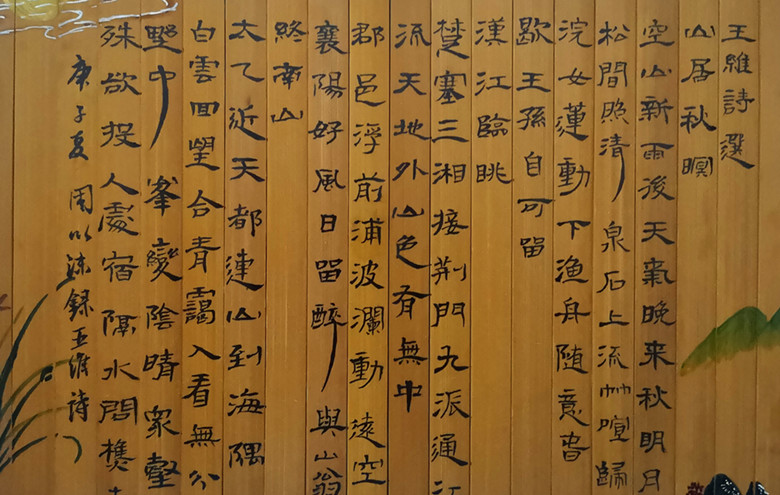 王維詩選
山居秋暝
空山新雨後天氣晚來秋明月
松間照清泉石上流竹喧歸
浣女蓮動下漁舟隨意春
歇王孫自可留
漢江臨眺
楚塞三湘接荆門九派通江
流天地外山色有無中
郡邑浮前浦波瀾動遠空
襄陽好風日留醉與山翁
終南山
太乙近天都連山到海隅
白雲回望合青靄入看無分
野中峯變陰晴衆壑
殊欲投人處宿隔水問樵
庚子夏周以錄王維詩